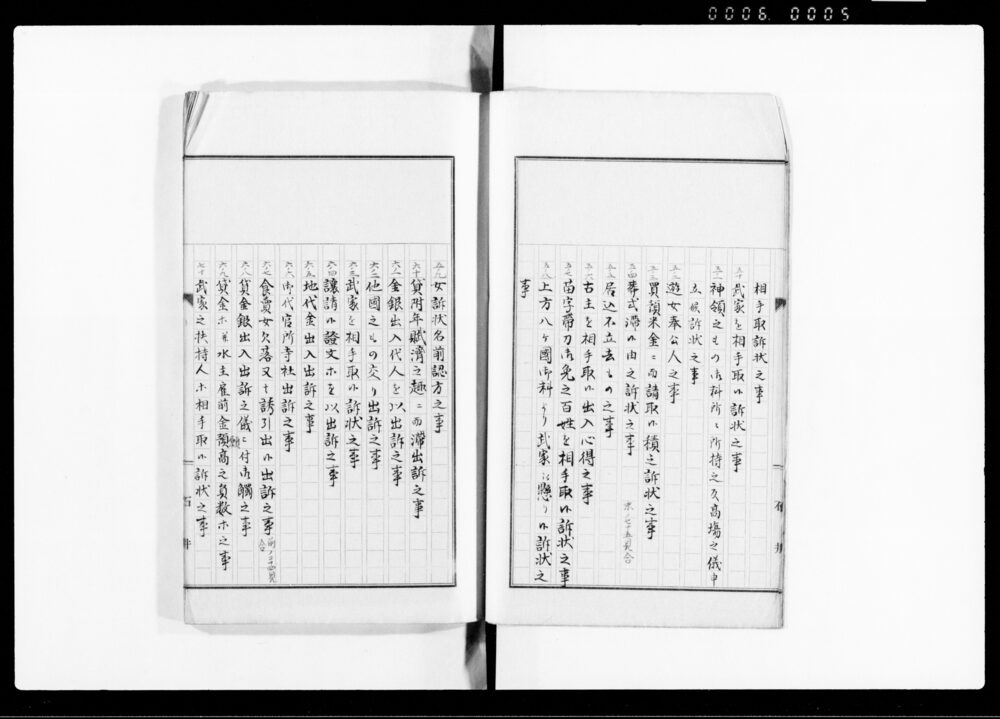 0006 0005
相手取訴状之事
五十 武家を相手取候訴状之事
五一 神領之もの御料所ニ所持之及高場之儀申
立候訴状之事
五二 遊女奉公人之事
五三 買預米金ニ而請取候積之訴状之事
五四 葬式滞候由之訴状之事 末ノ七十五見合
五五 居込不立去もの之事
五六 古主を相手取候出入心得之事
五七 苗字帯刀御免之百姓を相手取候訴状之事
五八 上方八ヶ國御料より武家江懸り候訴状之
事
五九 女訴状名前認方之事
六十 貸附年賦済之趣ニ而滞出訴之事
六一 金銀出入代人を以出訴之事
六二 他國之もの交り出訴之事
六三 武家を相手取候訴状之事
六四 譲請候證文ホを以出訴之事
六五 地代金出入出訴之事
六六 御代官所寺社出訴之事
六七 食賣女欠落又も誘引出候出訴之事 前ノ三十四見合
六八 貸金銀出入出訴之儀ニ付御觸之事
六九 貸金ホ并水主雇前金預高之負数ホ之事
七十 武家之扶持人ホ相手取候訴状之事
石井
石井